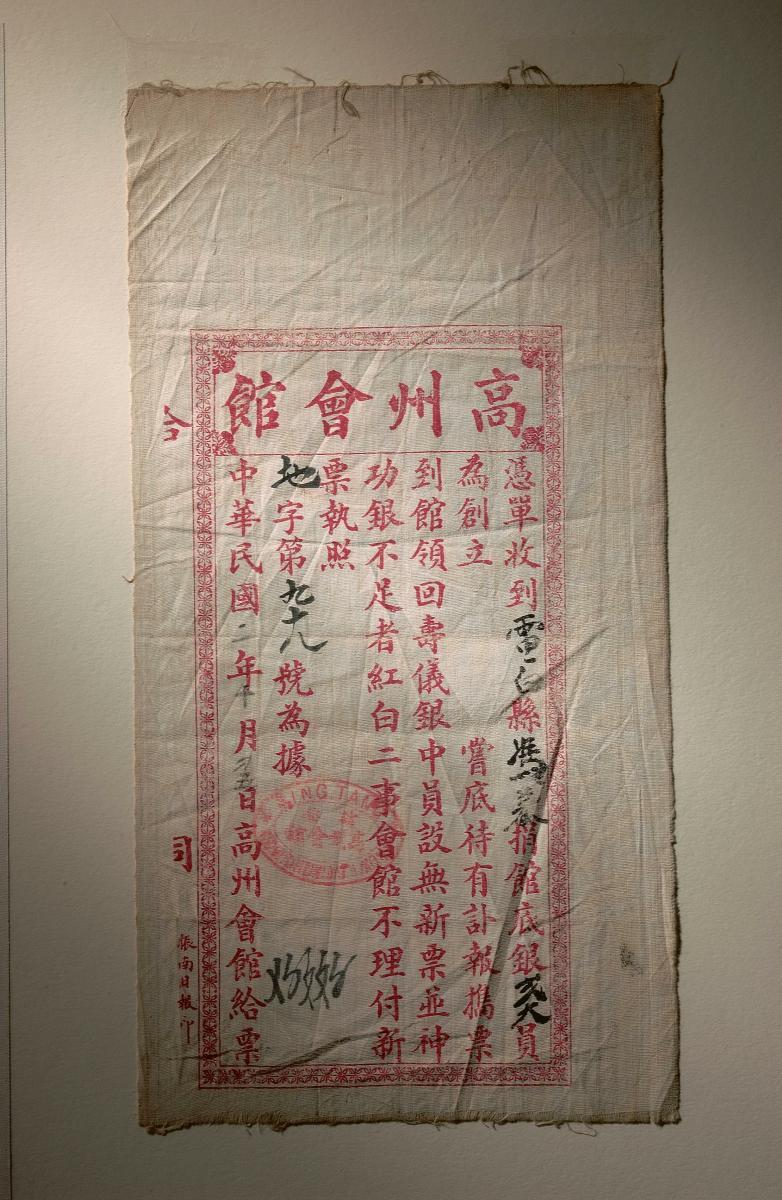 高州會館
憑單收到電白縣馮捐館底銀員
為創立 嘗底待有訃報攜票
到館領回壽儀銀中員設無新票並神
功銀不足者紅白二事會館不理付新
票執照
地字第九十八號為據
中華民國二年十月日高州會館給票
合
司
振南日報印
SING TAN